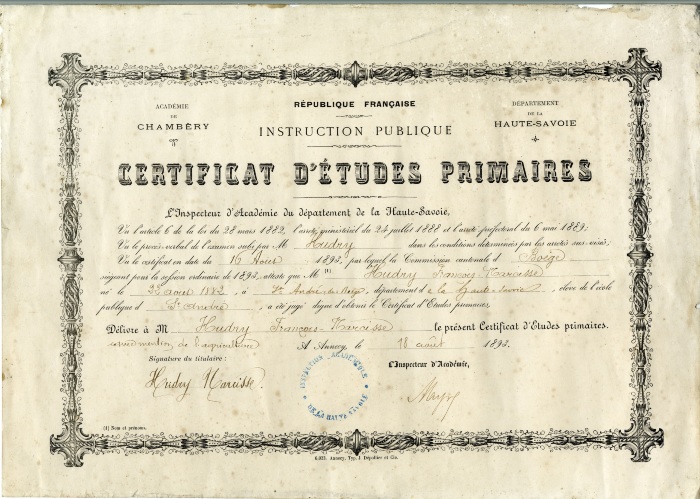 ACADÉMIE
DE
CHAMBÉRY
RÉPUBLIQUE FRANÇAISE
INSTRUCTION PUBLIQUE
DÉPARTEMENT
DE LA
HAUTE-SAVOIE
CERTIFICAT D'ÉTUDES PRIMAIRES
L'Inspecteur d'Académie du département de la Haute-Savoie,
Vu l'article 6 de la loi du 28 mars 1882, l'arrêté ministériel du 24 juillet 1888 et l'arrêté préfectoral du 6 mai 1889;
Vu le procès-verbal de l'examen subi par M Hudry dans les conditions déterminées par les arrêtés sus-visés;
Vu le certificat en date du 16 Août 1893, par lequel la Commission cantonale d Boëge
siégeant pour la session ordinaire de 1893, atteste que M (1) Hudry François-Narcisse
né le 22 août 1882 à St André-de-Boëge, département d e la Haute-Savoie, élève de l'école
publique d St André, a été jugé digne d'obtenir le Certificat d'Etudes primaires,
Délivre à M Hudry François-Narcisse le présent Certificat d'Etudes primaires.
avec mention de l'agriculture A Annecy, le 18 août 1893.
Signature du titulaire :
L'Inspecteur d'Académie,
Hudry Narcisse.
INSPECTION ACADÉMIQUE
DE LA HAUTE-SAVOIE
(1) Nom et prénoms.
Annecy, Typ. J. Dépollier et Cie.